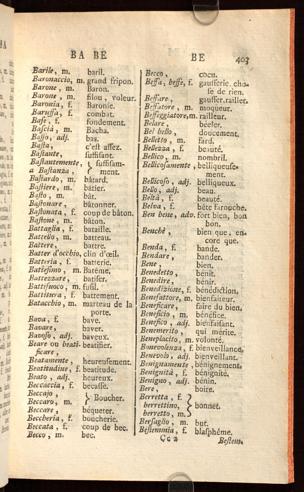 BA BE
BE 403
Barile, m. baril.
Baronaccio, m. grand fripon.
Barone, m. Baron.
Barone, m. filou, voleur.
Baronia, f. Baronie.
Baruffa, f. combat.
Base, f. fondement.
Bascià, m. Bacha.
Basso, adj. bas.
Basta, c'est assez.
Bastante, suffisant.
Bastantemente, } suffisam-
a Bastanza, } ment.
Bastardo, m. bâtard.
Bastiere, m. bâtier.
Basto, m. bât.
Bastonare, bâtonner.
Bastonata, f. coup de bâton.
Bastone, m. bâton.
Battaglia, f. bataille.
Battello, m. batteau.
Battere, battre.
Batter d'occhio, clin d'œil.
Batteria, f. batterie.
Battesimo, m. Batême.
Battezzare, batiser.
Battifuoco, m. fusil.
Battitura, f. battement.
Batacchio, m. marteau de la
porte.
Bava, f. bave.
Bavare, baver.
Bavoso, adj. baveux.
Beare ou beati- beatifier.
ficare,
Beatamente, heureusement.
Beatitudine, f. beatitude.
Beato, adj. heureux.
Beccaccia, f. becasse.
Beccajo, } Boucher.
Beccaro, m. }
Beccare, béqueter.
Beccheria, f. boucherie.
Beccata, f. coup de bec.
Becco, m. bec.
Becco, cocu.
Beffa, beffe, f. gausserie, cho-
se de rien.
Beffare, gausser, railler.
Beffatore, m. moqueur.
Beffeggiatore, m. railleur.
Belare, béeler.
Bel bello, doucement.
Belletto, m. fard.
Bellezza, f. beauté.
Bellico, m. nombril.
Bellicosamente, belliqueuse-
ment.
Bellicoso, adj. belliqueux.
Bello, adj. beau.
Beltà, f. beauté.
Belva, f. bête farouche.
Bene bene, ado. fort bien, bon
bon.
Benchè, bien que, en-
core que.
Benda, f. bande.
Bendare, bander.
Bene, bien.
Benedetto, bénit.
Benedire, bénir.
Benedizione, f. bénédiction.
Benefattore, m. bienfaiteur.
Beneficare, faire du bien.
Beneficio, m. bénéfice.
Benefico, adj. bienfaisant.
Benemerito, qui mérite.
Beneplacito, m. volonté.
Benevolenza, f. bienveillance.
Benevolo, adj. bienveillant.
Benignamente, bénignement.
Benignità, f. bénignité.
Benigno, adj. bénin.
Bere, boire.
Berretta, f. }
berrettino, } bonnet.
berretto, m. }
Bersaglio, m. but.
Bestemmia, f. blasphême.
Cc 2 Bestem.